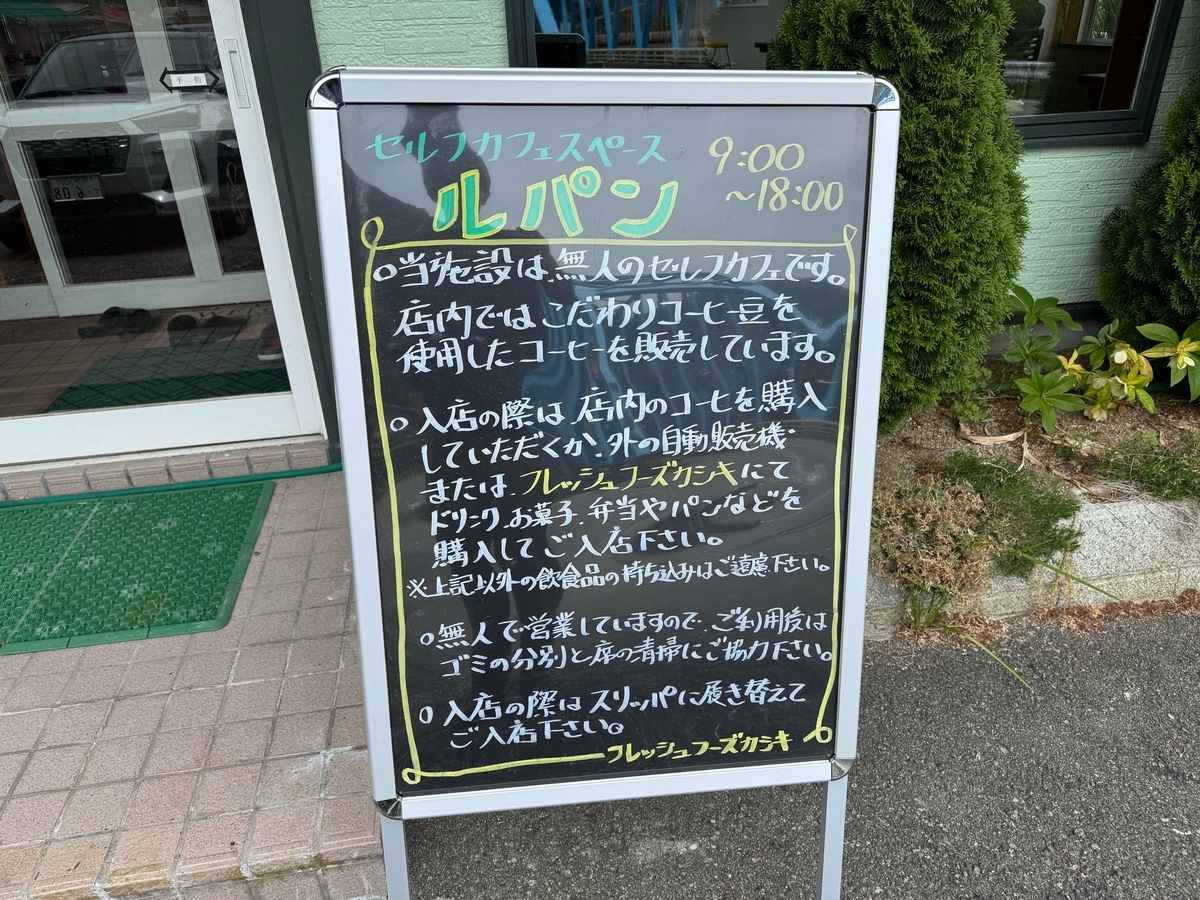 手動
セルフカフェスペース
ルパン
9:00
～18:00
○当施設は、無人のセルフカフェです。
店内ではこだわりコーヒー豆を
使用したコーヒーを販売しています。
○入店の際は、店内のコーヒを購入
していただくか、外の自動販売機・
または、フレッシュフーズカシキにて
ドリンク、お菓子、弁当やパンなどを
購入してご入店下さい。
※上記以外の飲食品の持ち込みはご遠慮下さい。
○無人で営業していますので、ご利用後は
ゴミの分別と席の清掃にご協力下さい。
○入店の際はスリッパに履き替えて
ご入店下さい。
フレッシュフーズカシキ